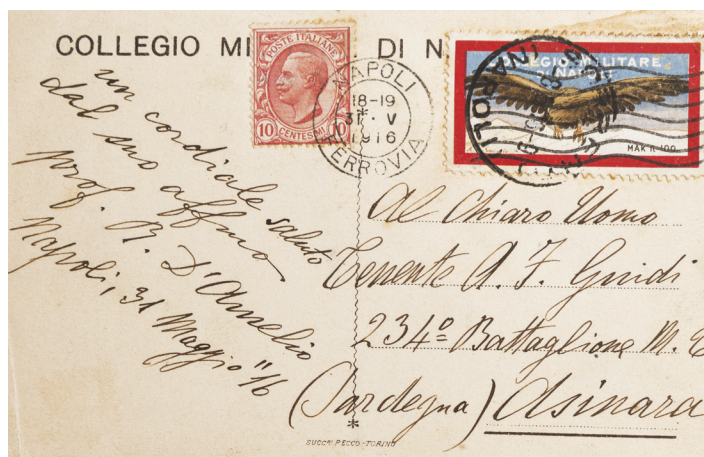 COLLEGIO MI DI N
POSTE ITALIANE
10 CENTESIMI 10
NAPOLI
18-19
31 · V
1916
FERROVIA
COLLEGIO MILITARE
DI NAPOLI
NAPOLI
un cordiale saluto
dal suo affmo
prof. R. D'Amelio
Napoli, 31 Maggio "16
Al Chiaro Uomo
Tenente A. F. Guidi
234º Battaglione M.
(Sardegna) Asinara
SUCCRI PECCO-TORINO